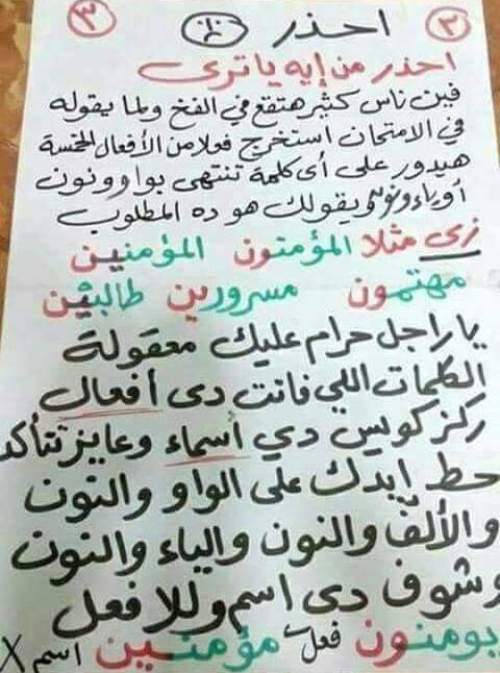 ٢ احذر ٣
احذر من إيه يا ترى
فيه ناس كثير هتقع في الفخ ولما يقوله
في الامتحان استخرج فعلا من الأفعال الخمسة
هيدور على أى كلمة تنتهى بواو ونون
أو ياء ونون يقولك هو ده المطلوب
زى مثلا المؤمنون المؤمنين
مهتمون مسرورين طالبين
يا راجل حرام عليك معقولة
الكلمات اللي فاتت دى أفعال
ركز كويس دي أسماء وعايز تتأكد
حط ايدك على الواو والنون
والألف والنون والياء والنون
وشوف دى اسم وللا فعل
يومنون فعل مؤمنين اسم X